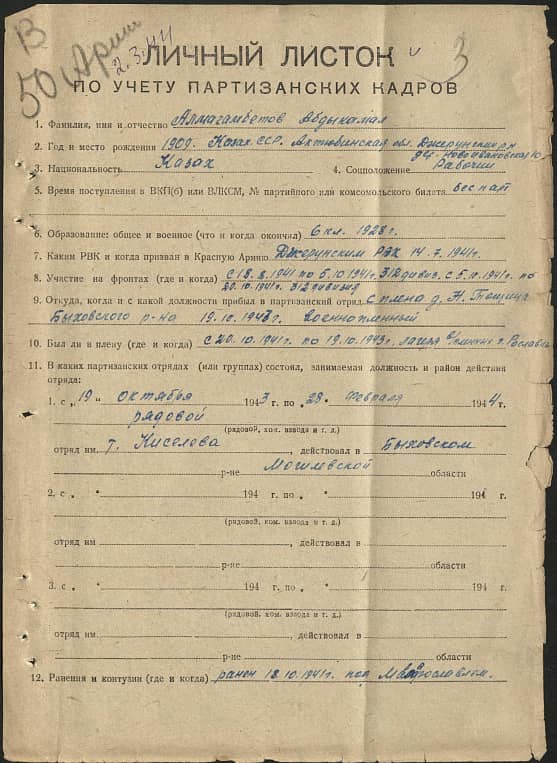 В
50 Арми
2.3.44
3
ЛИЧНЫЙ ЛИСТОК
ПО УЧЕТУ ПАРТИЗАНСКИХ КАДРОВ
1. Фамилия, имя и отчество Алмагамбетов Абдыкамал
2. Год и место рождения 1909. Казах. ССР. Актюбинская обл. Джерунский р-н
Рабочий
3. Национальность Казах 4. Соцположение
5. Время поступления в ВКП(б) или ВЛКСМ, № партийного или комсомольского билета бес парт
6. Образование: общее и военное (что и когда окончил) 6 кл. 1928 г.
7. Каким РВК и когда призван в Красную Армию Джерунским РВК 14.7.1941г.
8. Участие на фронтах (где и когда) с 18.8.1941 по 5.10.1941г. 312 дивиз. с 5. 1941г. по
20.10.1941г. 312 дивизия
9. Откуда, когда и с какой должности прибыл в партизанский отряд с плена д. Н. Тощица
Быховского р-на 19.10.1943г. Военнопленный
10. Был ли в плену (где и когда) с 20.10.1941г. по 19.10.1943г. лагерь г. Рославль
11. В каких партизанских отрядах (или группах) состоял, занимаемая должность и район действия
отряда:
1. с „19 „ октября 1943 г. по „28 „ Февраля 1944 г.
рядовой
(рядовой, ком. взвода и т. д.)
отряд им. т. Киселева, действовал в Быховском
р-не Могилевской области
2. с „ „ 194 г. по „ „ 194 г.
(рядовой, ком. взвода и т. д.)
отряд им , действовал в
р-не области
3. с „ „ 194 г. по „ „ 194 г.
(рядовой, ком. взвода и т. д.)
отряд им , действовал в
р-не области
12. Ранения и контузии (где и когда) ранен 18.10.1941г. под